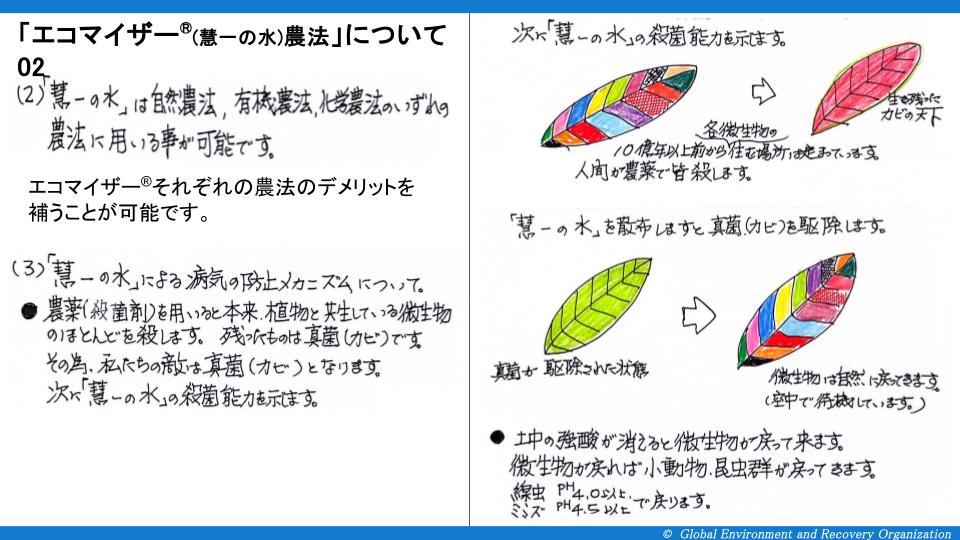 「エコマイザー®(慧一の水)農法」について
02
(2)「慧一の水」は自然農法, 有機農法, 化学農法のいずれの
農法に用いる事が可能です。
エコマイザー®それぞれの農法のデメリットを
補うことが可能です。
(3)「慧一の水」による病気の防止メカニズムについて。
● 農薬(殺菌剤)を用いると本来、植物と共生している微生物
のほとんどを殺します。残ったものは真菌(カビ)です。
その為、私たちの敵は真菌(カビ)となります。
次に「慧一の水」の殺菌能力を示します。
次に「慧一の水」の殺菌能力を示します。
生き残った
カビの天下
各微生物の
10億年以上前から住む場所は決まっています。
人間が農薬で皆殺します。
「慧一の水」を散布しますと真菌(カビ)を駆除します。
真菌が駆除された状態
微生物は自然に戻ってきます
(空中で待機しています。)
● 土中の強酸が消えると微生物が戻って来ます。
微生物が戻れば小動物、昆虫群が戻ってきます。
線虫 PH4.0以上、
ミミズ PH4.5以上で戻ります。
© Global Environment and Recovery Organization